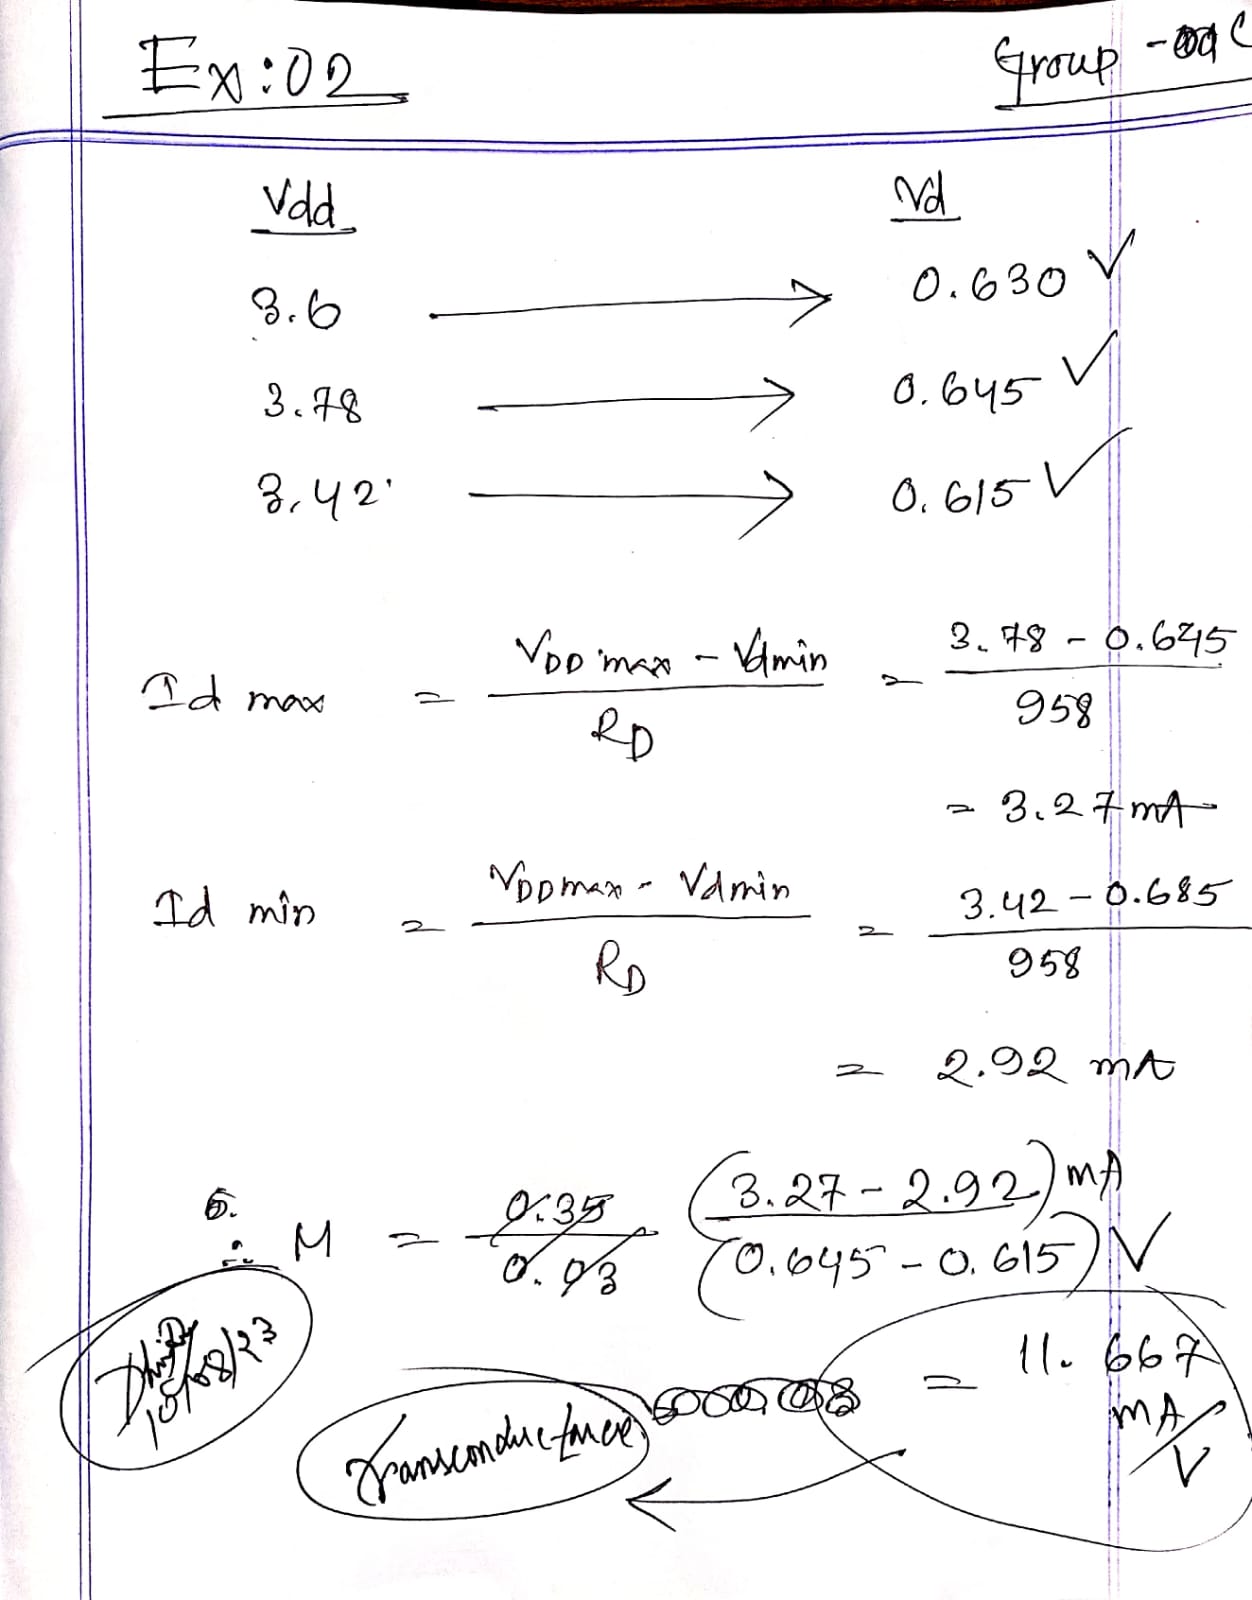 Ex:02 Group - C
Vdd Vd
3.6 → 0.630 ✓
3.78 → 0.645 ✓
3.42 → 0.615 ✓
Id max = (VDD max - Vdmin) / RD = (3.78 - 0.645) / 958
= 3.27 mA
Id min = (VDDmax - Vdmin) / RD = (3.42 - 0.685) / 958
= 2.92 mA
6.
∴ M = 0.35 / 0.03 (3.27 - 2.92) mA / (0.645 - 0.615) V
10/08/23
= 11.667 mA/V
Transconductance ←